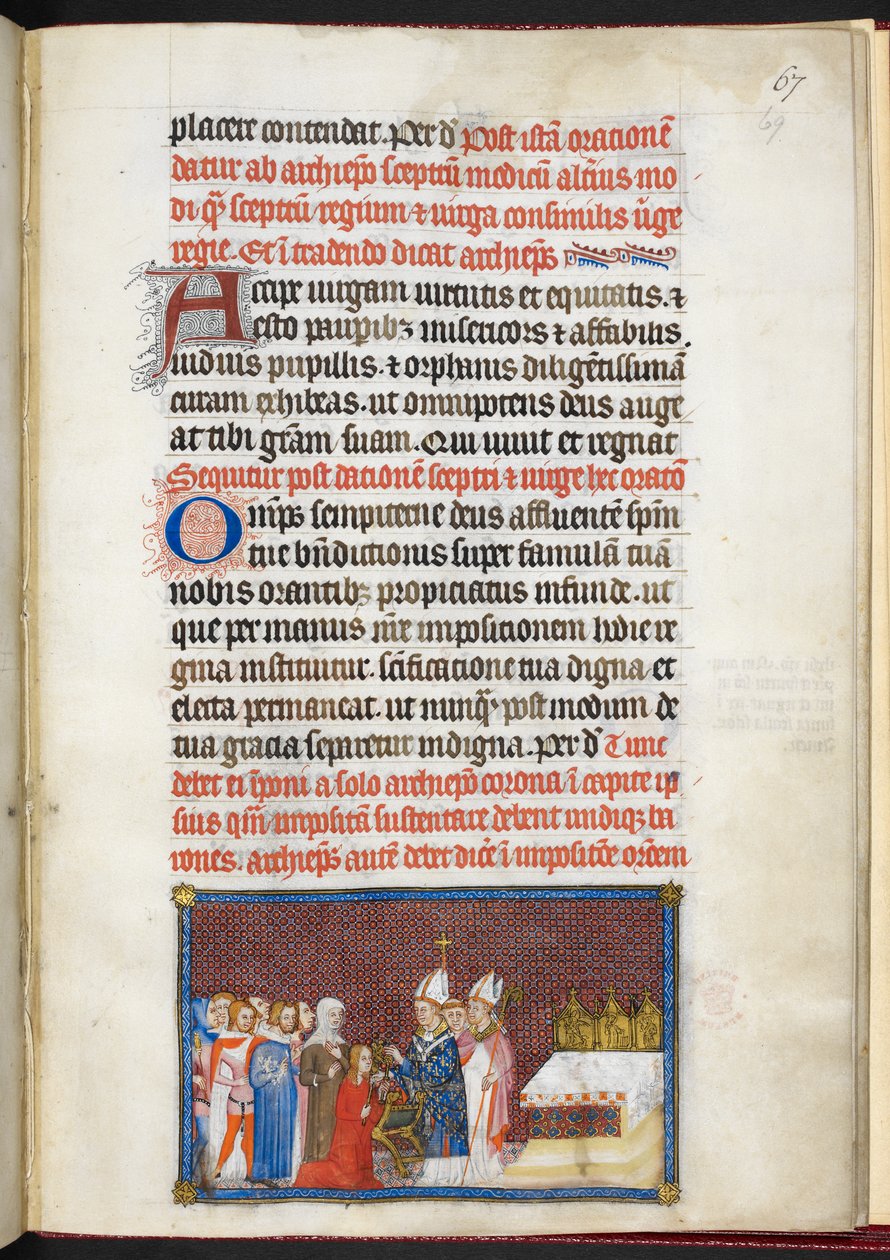 67
69
placere contendat. Per d̄ Post istā orationē
datur ab archiepō sceptrū modicū alt̄ius mo
di q̄ꝫ sceptrū regium ⁊ uirga consimilis ūge
regie. Et ī tradendo dicat archiep̄s
Accipe uirgam uirtutis et equitatis. ⁊
esto paup̄ibꝫ misericors ⁊ affabilis.
uiduis pupillis. ⁊ orphanis diligētissimā
curam exhibeas. ut omnipotens deus auge
at tibi gr̄am suam. Qui uiuit et regnat
Sequitur post dationē sceptri ⁊ uirge hec oratō
Omp̄s sempiterne deus affluentē sp̄m
tue bn̄dictionis super famulā tuā
nobis orantibꝫ propiciatus infunde. ut
que per manus n̄re impositionem hodie re
gina instituitur. sc̄ificatione tua digna et
electa permaneat. ut nunq̄ꝫ postmodum de
tua gracia separetur indigna. per d̄ Tunc
debet ei īponi a solo archiepō corona ī capite ip
sius qm̄ impositā sustentare debent undiqꝫ ba
rones. archiep̄s autē debet dic̄e ī impositōe or̄oem